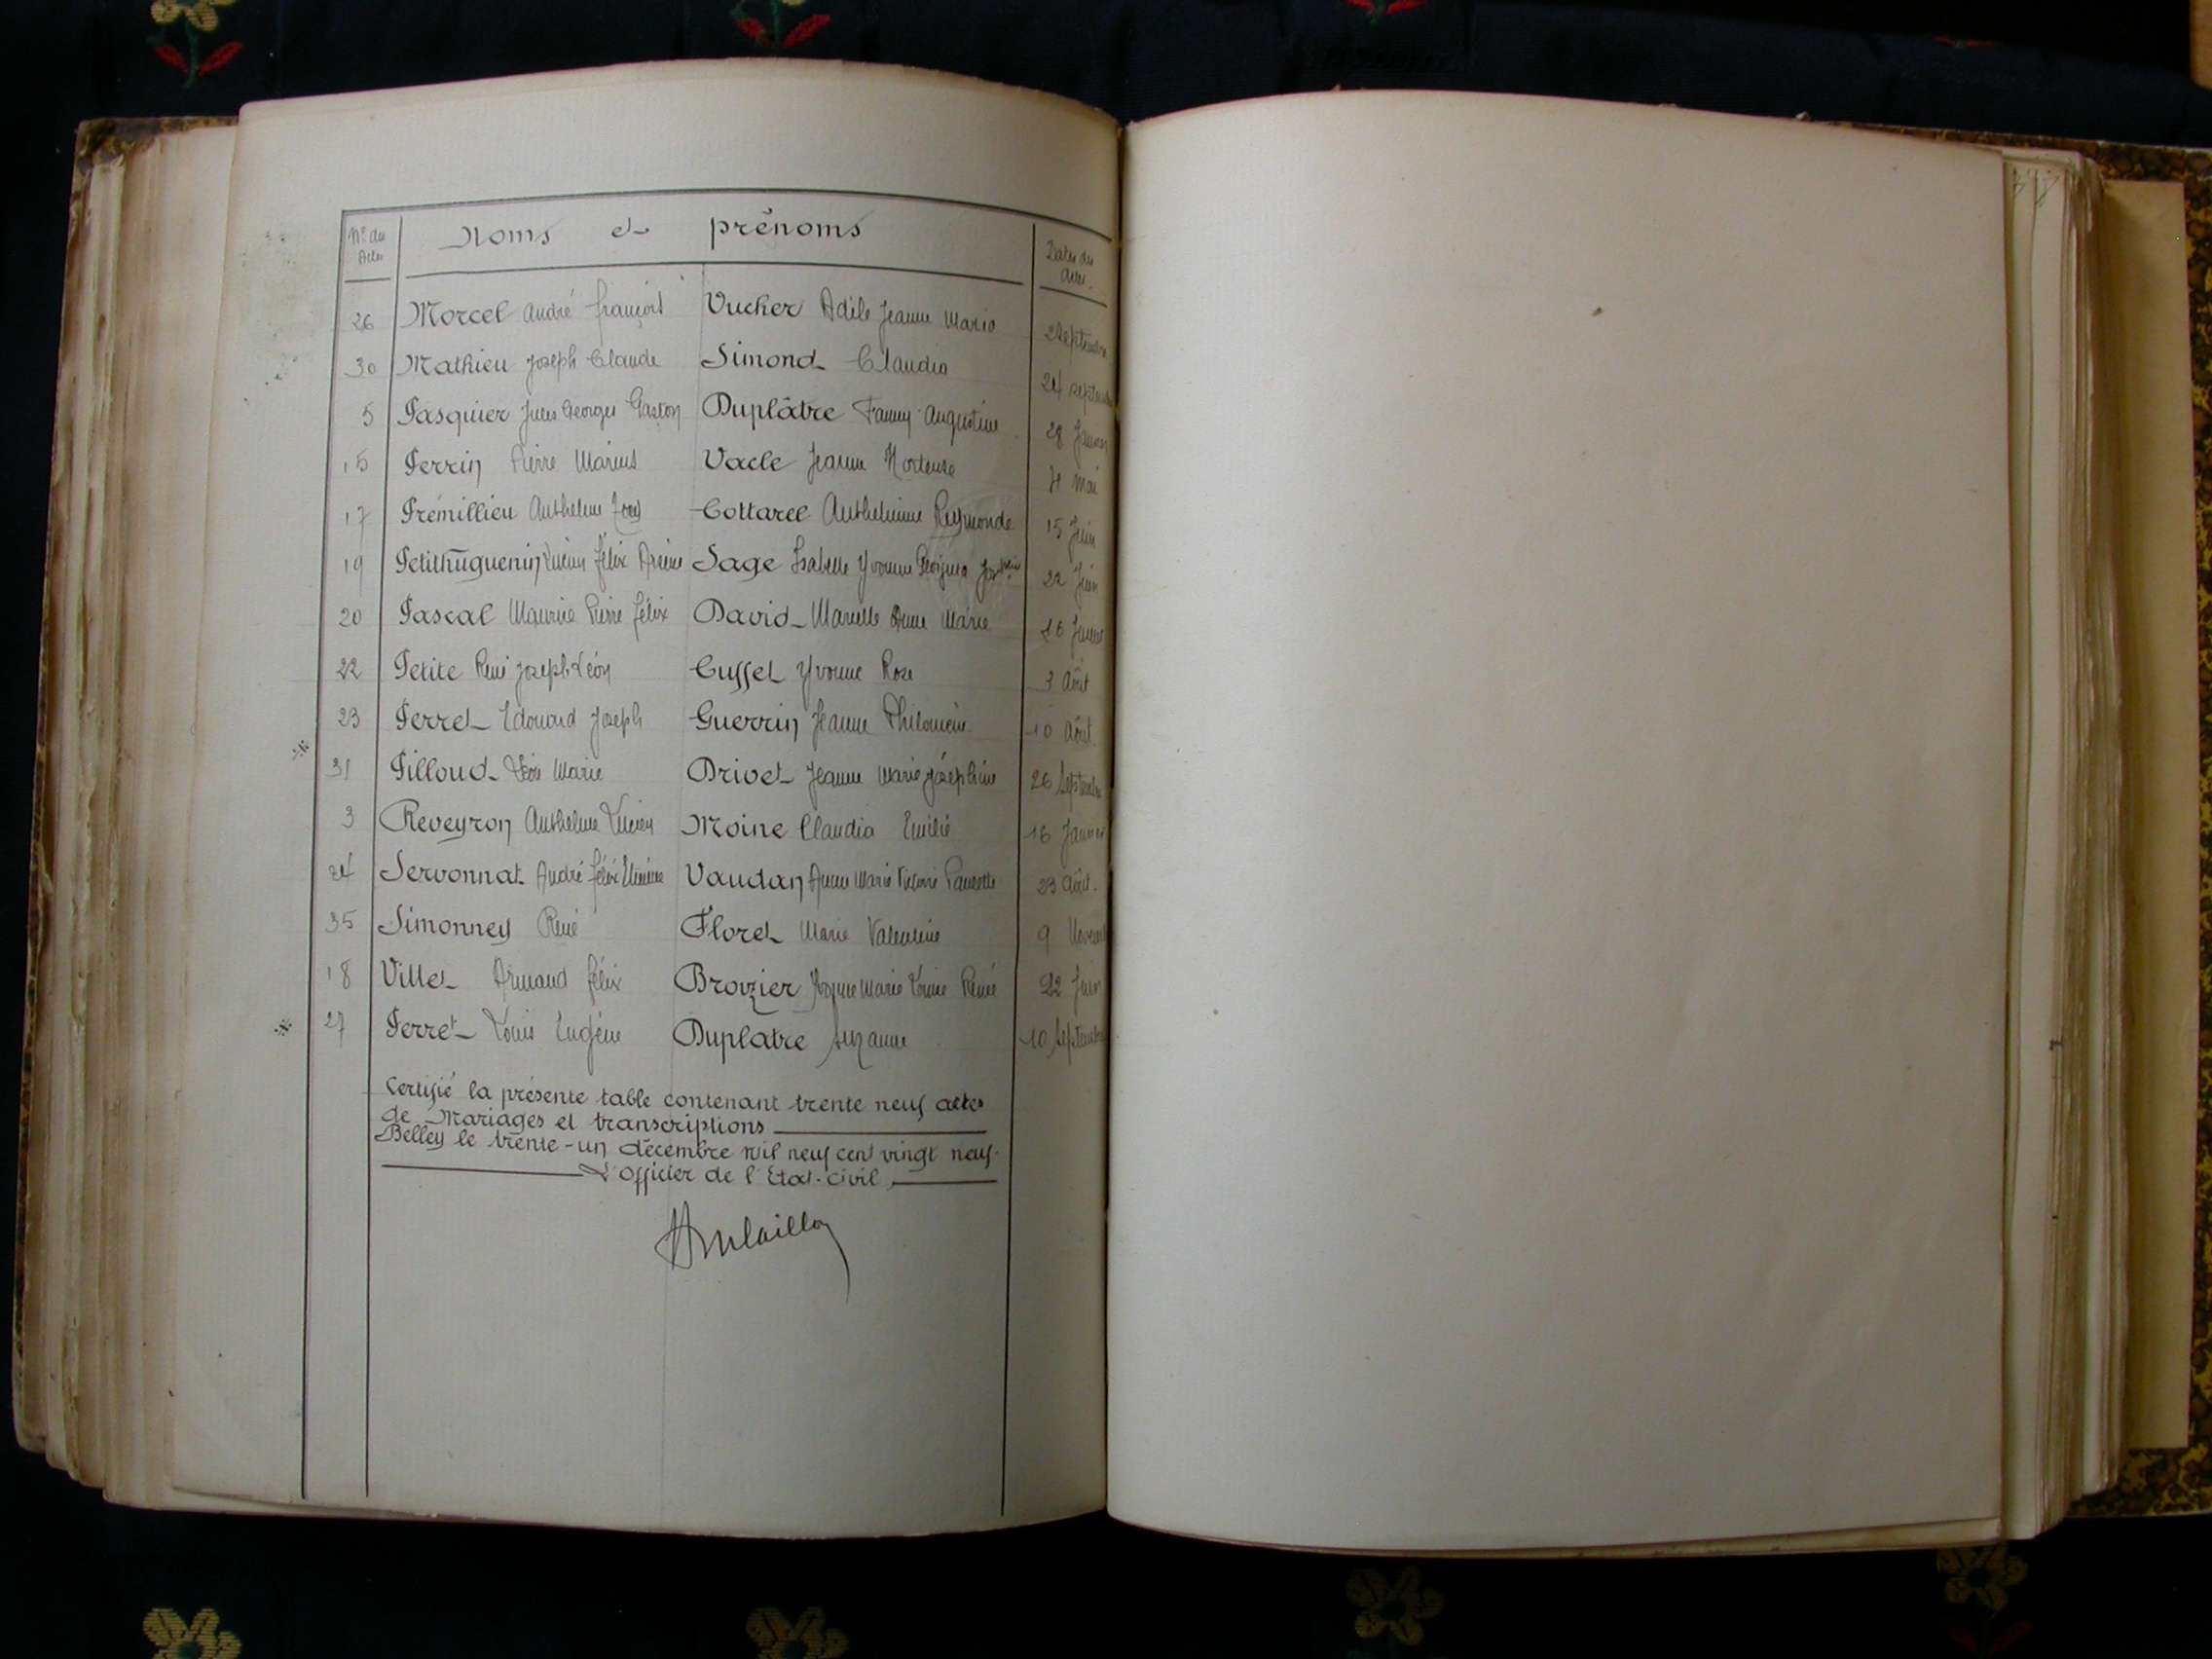 Nos des Actes Noms et prénoms Dates des actes
26 Morcel André François Vucher Adèle Jeanne Maria 2 septembre
30 Mathieu Joseph Claude Simond Claudia 24 septembre
5 Pasquier Jules Georges Gaston Duplâtre Fanny Augustine 28 Janvier
15 Perrin Pierre Marius Vacle Jeanne Hortense 4 Mai
17 Prémillieu Anthelme Cottarel Anthelmine Reymonde 15 Juin
19 Petithuguenin Lucien Félix Arsène Sage Isabelle Yvonne 22 Juin
20 Pascal Maurice Pierre Félix David Marcelle Anne Marie 16
22 Petite René Joseph Léon Cussel Yvonne Rose 3 Août
23 Perret Edouard Joseph Guerrin Jeanne Philomène 10 Août.
31 Pilloud Léon Marie Drivet Jeanne Marie Joséphine 26 Septembre
3 Reveyron Anthelme Lucien Moine Claudia Emilie 16 Janvier
24 Servonnat André Félix Vaudan Anne Marie Victorie Paulette 23 Août.
35 Simonney René Floret Marie Valentine 9 Novembre
18 Villet Armand Félix Brozier Yvonne Marie Louise Renée 22 Juin
27 Perret Louis Eugène Duplatre Suzanne 10 Septembre
Certifié la présente table contenant trente neuf actes
de Mariages et transcriptions
Belley le trente-un décembre mil neuf cent vingt neuf.
L'officier de l'Etat-civil